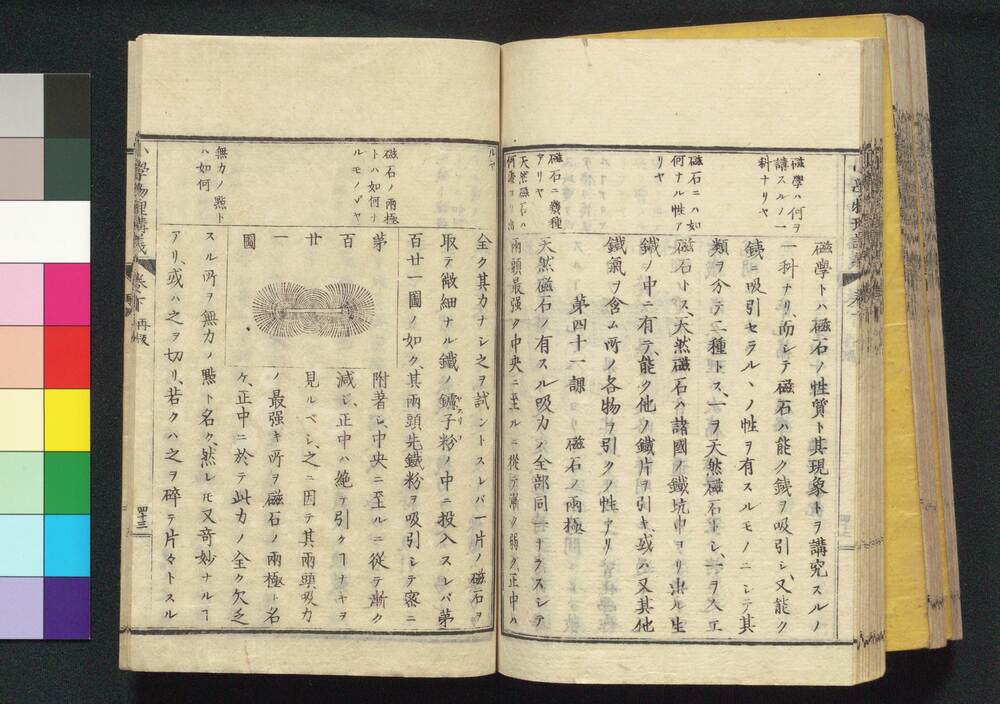 磁學ハ何ヲ
講スルノ一
科ナリヤ
磁石ニハ如
何ナル性ア
リヤ
磁石ニ幾種
アリヤ
天然磁石ハ
磁學トハ磁石ノ性質ト其現象トヲ講究スルノ
一科ナリ、而シテ磁石ハ能ク鐵ヲ吸引シ、又能ク
鐵ニ吸引セラルヽノ性ヲ有スルモノニシテ其
類ヲ分テ二種トス、一ヲ天然磁石トシ、一ヲ人工
磁石トス、天然磁石ハ諸國ノ鐵坑中ヨリ出ル生
鐵ノ中ニ有テ、能ク他ノ鐵片ヲ引キ、或ハ又其他
鐵氣ヲ含ム所ノ各物ヲ引クノ性アリ
第四十一課 磁石ノ兩極
天然磁石ノ有スル吸力ハ全部同一ナラスシテ
兩頭最强ク中央ニ至ルニ從テ漸ク弱ク、正中ハ
ルヤ
磁石ノ兩極
トハ如何ナ
ルモノゾヤ
無力ノ點ト
ハ如何
全ク其力ナシ之ヲ試ントスレバ一片ノ磁石ヲ
取テ微細ナル鐵ノ鑢子粉ノ中ニ投入スレバ第
百廿一圖ノ如ク、其兩頭先鐵粉ヲ吸引シテ密ニ
第百廿一圖
附著シ、中央ニ至ルニ從テ漸ク
減シ、正中ハ絶テ引クヿナキヲ
見ルベシ、之ニ因テ其兩頭吸力
ノ最强キ所ヲ磁石ノ兩極ト名
ケ、正中ニ於テ此力ノ全ク欠乏
スル所ヲ無力ノ點ト名ク、然レ𪜈又奇妙ナルヿ
アリ、或ハ之ヲ切リ、若クハ之ヲ碎テ片々トスル
小學物理講義 卷下 再版
四十三